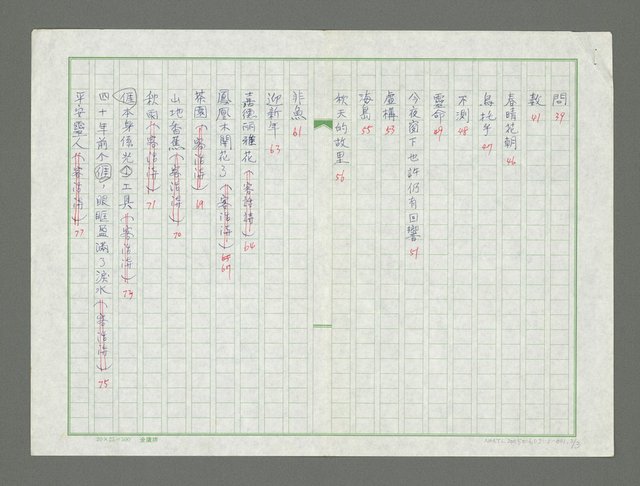 問 39
數 41
春晴花朝 46
烏托子 47
不測 48
靈命 49
今夜窗下也許仍有回響 51
虛構 53
海島 55
秋天的故里 56
非魚 61
迎新年 63
嘉德麗雅花（客語詩） 64
鳳凰木開花了（客語詩） 67
茶園（客語詩） 69
山地香蕉（客語詩） 70
秋雨（客語詩） 71
𠊎本身係光个工具（客語詩） 73
四十年前个𠊎，眼眶盈滿了淚水（客語詩） 75
平安靈人（客語詩） 77
20×25=500